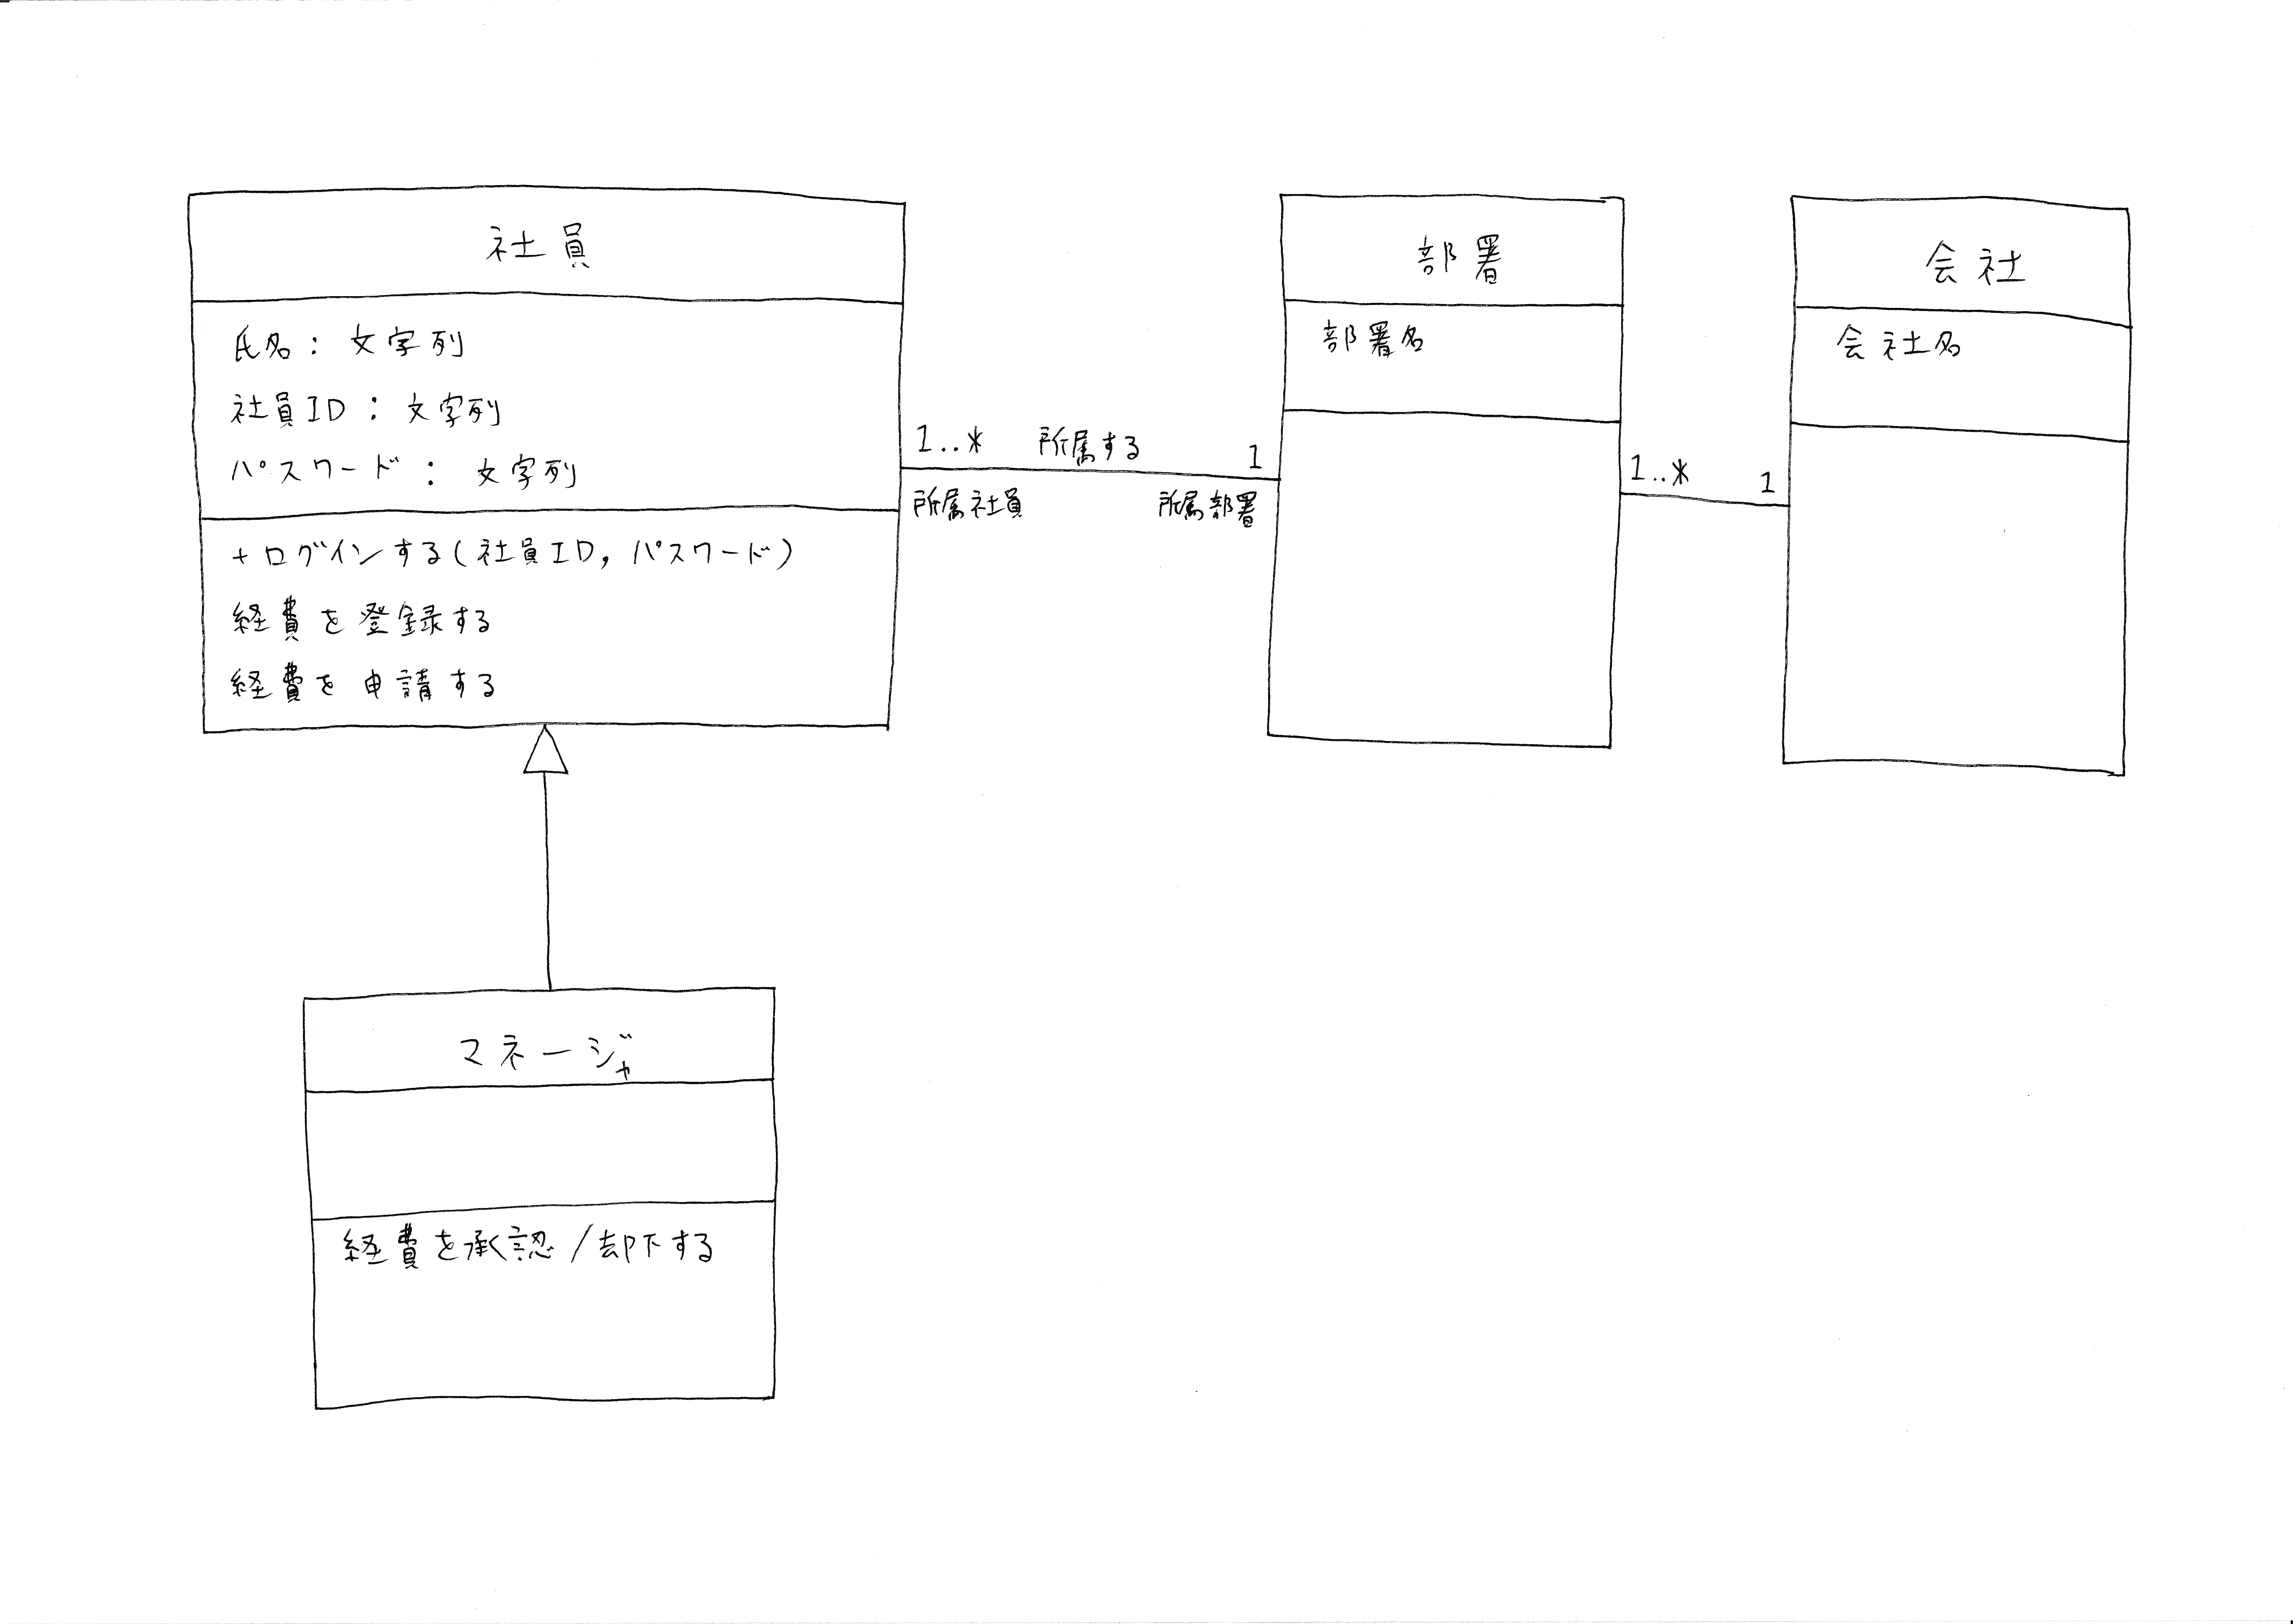 社員
氏名：文字列
社員ID：文字列
パスワード：文字列
+ログインする(社員ID, パスワード)
経費を登録する
経費を申請する
1..* 所属する 1
所属社員 所属部署
部署
部署名
1..* 1
会社
会社名
マネージャ
経費を承認/却下する